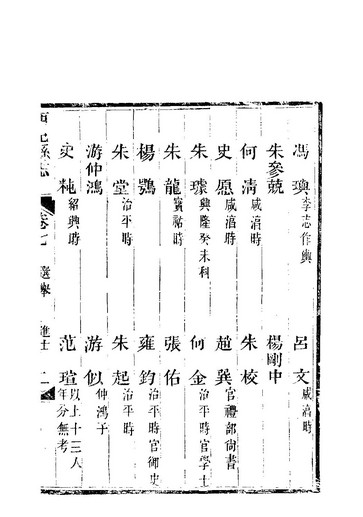 馮璵李志作輿 呂文咸湻時
朱參兢 楊剛中
何淸咸湻時 朱校
史愿咸湻時 趙巽官禮部尙書
朱瓌興隆癸未科 何金治平時官學士
朱龍寶祐時 張佑
楊鶚 雍鈞治平時官御史
朱堂治平時 朱起治平時
游仲鴻 游似仲鴻子
史 紹興時 范瑄以上十三人年分無考
西充縣志 卷七 選舉 進士 二